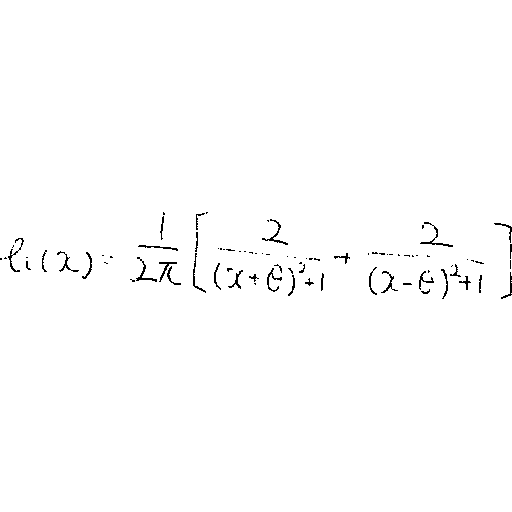 $l_1(x) = \frac{1}{2\pi} \left[ \frac{2}{(x+\theta)^2+1} + \frac{2}{(x-\theta)^2+1} \right]$